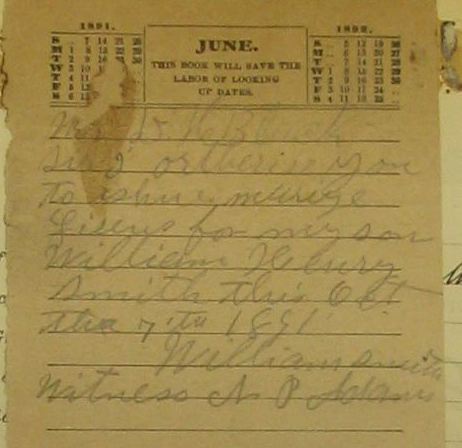 1891.
S .. 7 14 21 28
M 1 8 15 22 29
T 2 9 16 30
W 3 10
T 4 11
F 5 12
S 6 13
JUNE.
THIS BOOK WILL SAVE THE
LABOR OF LOOKING
UP DATES.
1892.
S .. 5 12 19 26
M .. 6 13 20 27
T .. 7 14 21 28
W 1 8 15 22 29
T 2 9 16 23 30
F 3 10 17 24 ..
S 4 11 18 25 ..
Mr
Sir I ortherise you
to ishue marige
Lisens for my son
William
Smith this Oct
the 7 th 1891
William Smith
Witness N P Adams